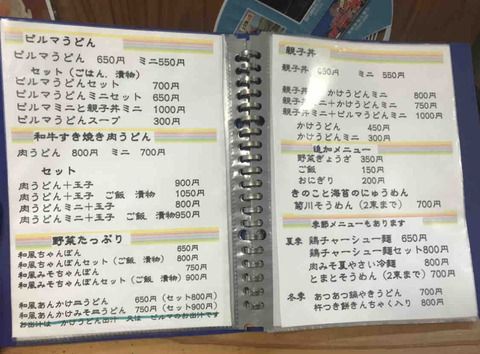 ビルマうどん
ビルマうどん 650円 ミニ550円
セット（ごはん、漬物）
ビルマうどんセット 700円
ビルマうどんミニセット 650円
ビルマミニと親子丼ミニ 1000円
ビルマうどんスープ 300円
和牛すき焼き肉うどん
肉うどん 800円 ミニ 700円
セット
肉うどん＋玉子 900円
肉うどん＋玉子 ご飯 漬物 1050円
肉うどんミニ＋玉子 800円
肉うどんミニ＋玉子 ご飯 漬物950円
野菜たっぷり
和風ちゃんぽん 650円
和風ちゃんぽんセット（ご飯、漬物） 800円
和風みそちゃんぽん 750円
和風みそちゃんぽんセット（ご飯、漬物） 900円
和風あんかけ皿うどん 650円（セット800円）
和風あんかけみそ皿うどん 750円（セット900円）
お出汁は かけうどん出汁 又は ビルマのお出汁です
親子丼
親子丼 650円 ミニ 550円
親子丼＋かけうどんミニ 800円
親子丼ミニ＋かけうどんミニ 750円
親子丼ミニ＋ビルマうどんミニ 1000円
かけうどん 450円
かけうどんミニ 300円
追加メニュー
野菜ぎょうざ 350円
ご飯 150円
おにぎり 200円
きのこと海苔のにゅうめん
菊川そうめん（2束まで） 700円
季節メニューもあります
夏季 鶏チャーシュー麺 650円
鶏チャーシュー麺セット800円
肉みそ夏やさい冷麺 800円
とまとそうめん（2束まで） 700円
冬季 あつあつ鍋やきうどん 700円
杵つき餅きんちゃく入り 800円